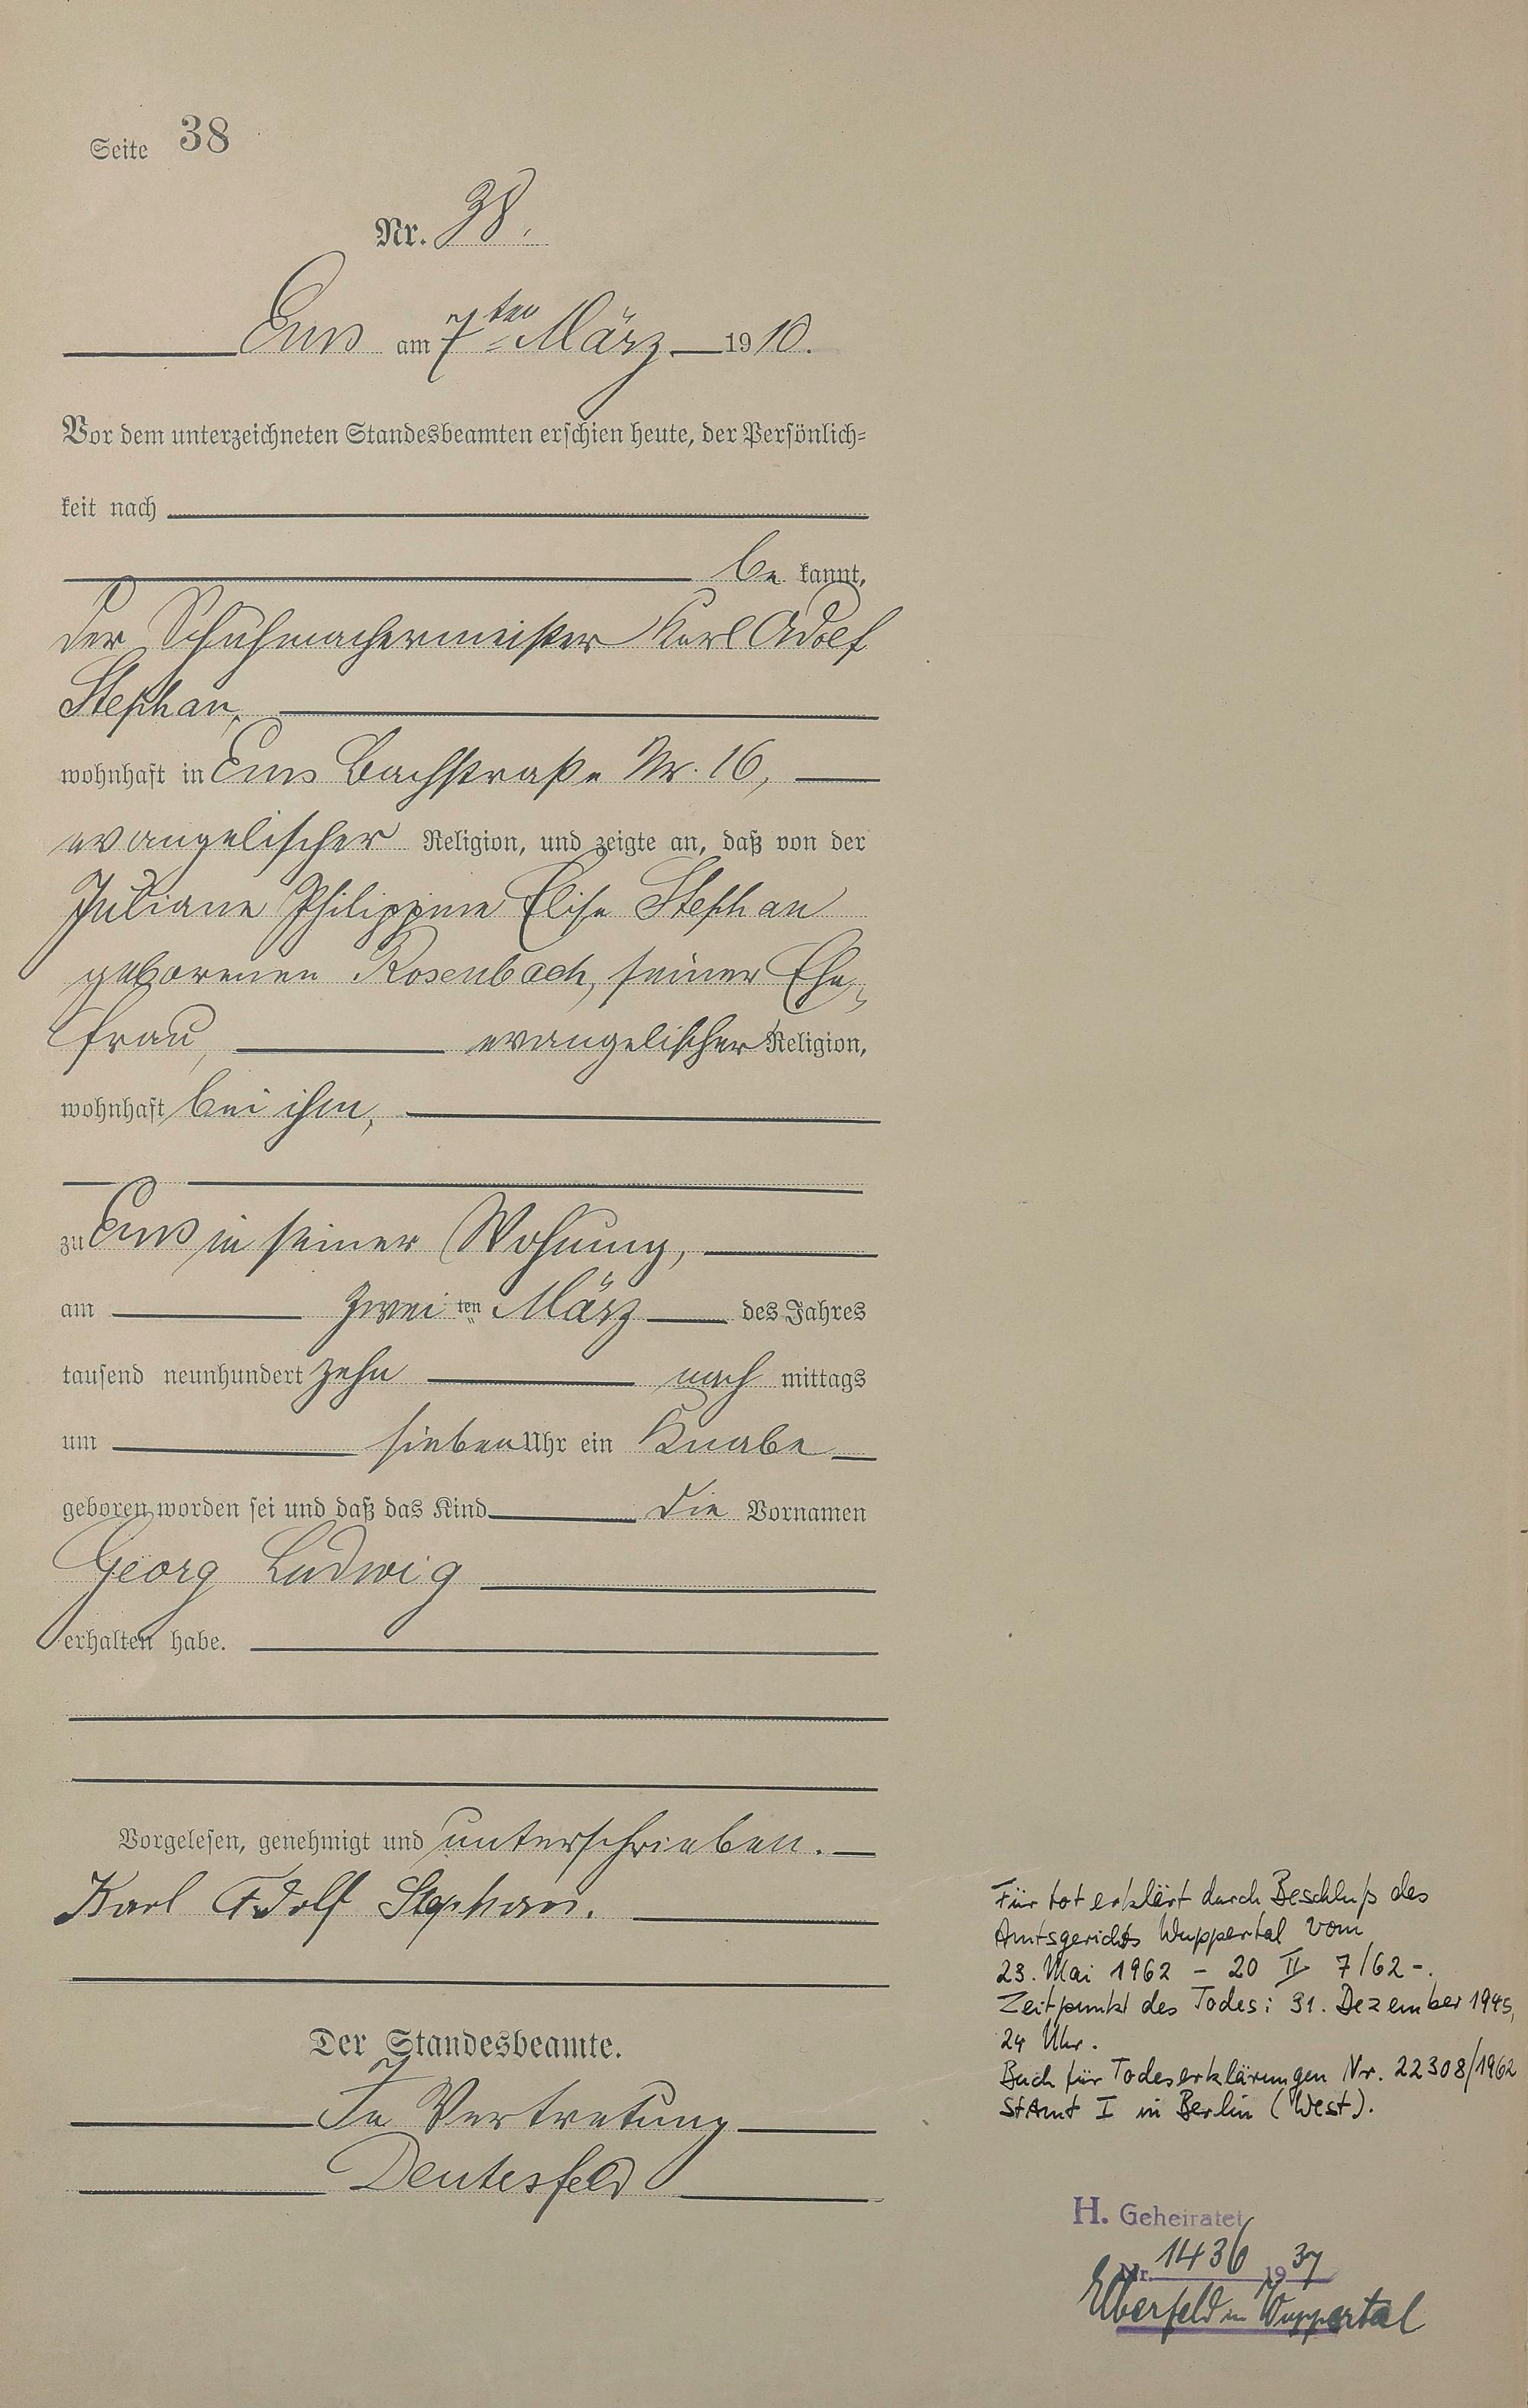 Seite 38
Nr. 38.
Ems am 7ten März 1910.
Vor dem unterzeichneten Standesbeamten erschien heute, der Persönlich=
keit nach
be kannt,
der Schuhmachermeister Karl Adolf
Stephan,
wohnhaft in Ems Bachstraße Nr. 16,
evangelischer Religion, und zeigte an, daß von der
Juliane Philippine Elise Stephan
geborenen Rosenbach, seiner Ehe-
frau, evangelischer Religion,
wohnhaft bei ihm,
zu Ems in seiner Wohnung,
am zwei ten März des Jahres
tausend neunhundert zehn nach mittags
um sieben Uhr ein Knabe
geboren worden sei und daß das Kind die Vornamen
Georg Ludwig
erhalten habe.
Vorgelesen, genehmigt und unterschrieben.
Karl Adolf Stephan.
Der Standesbeamte.
In Vertretung
Deutesfeld
Für tot erklärt durch Beschluß des
Amtsgerichts Wuppertal vom
23. Mai 1962 - 20 II 7/62 -.
Zeitpunkt des Todes: 31. Dezember 1945,
24 Uhr.
Buch für Todeserklärungen Nr. 22308/1962
StAmt I in Berlin (West).
H. Geheiratet
Nr. 1436 1937
Elberfeld in Wuppertal